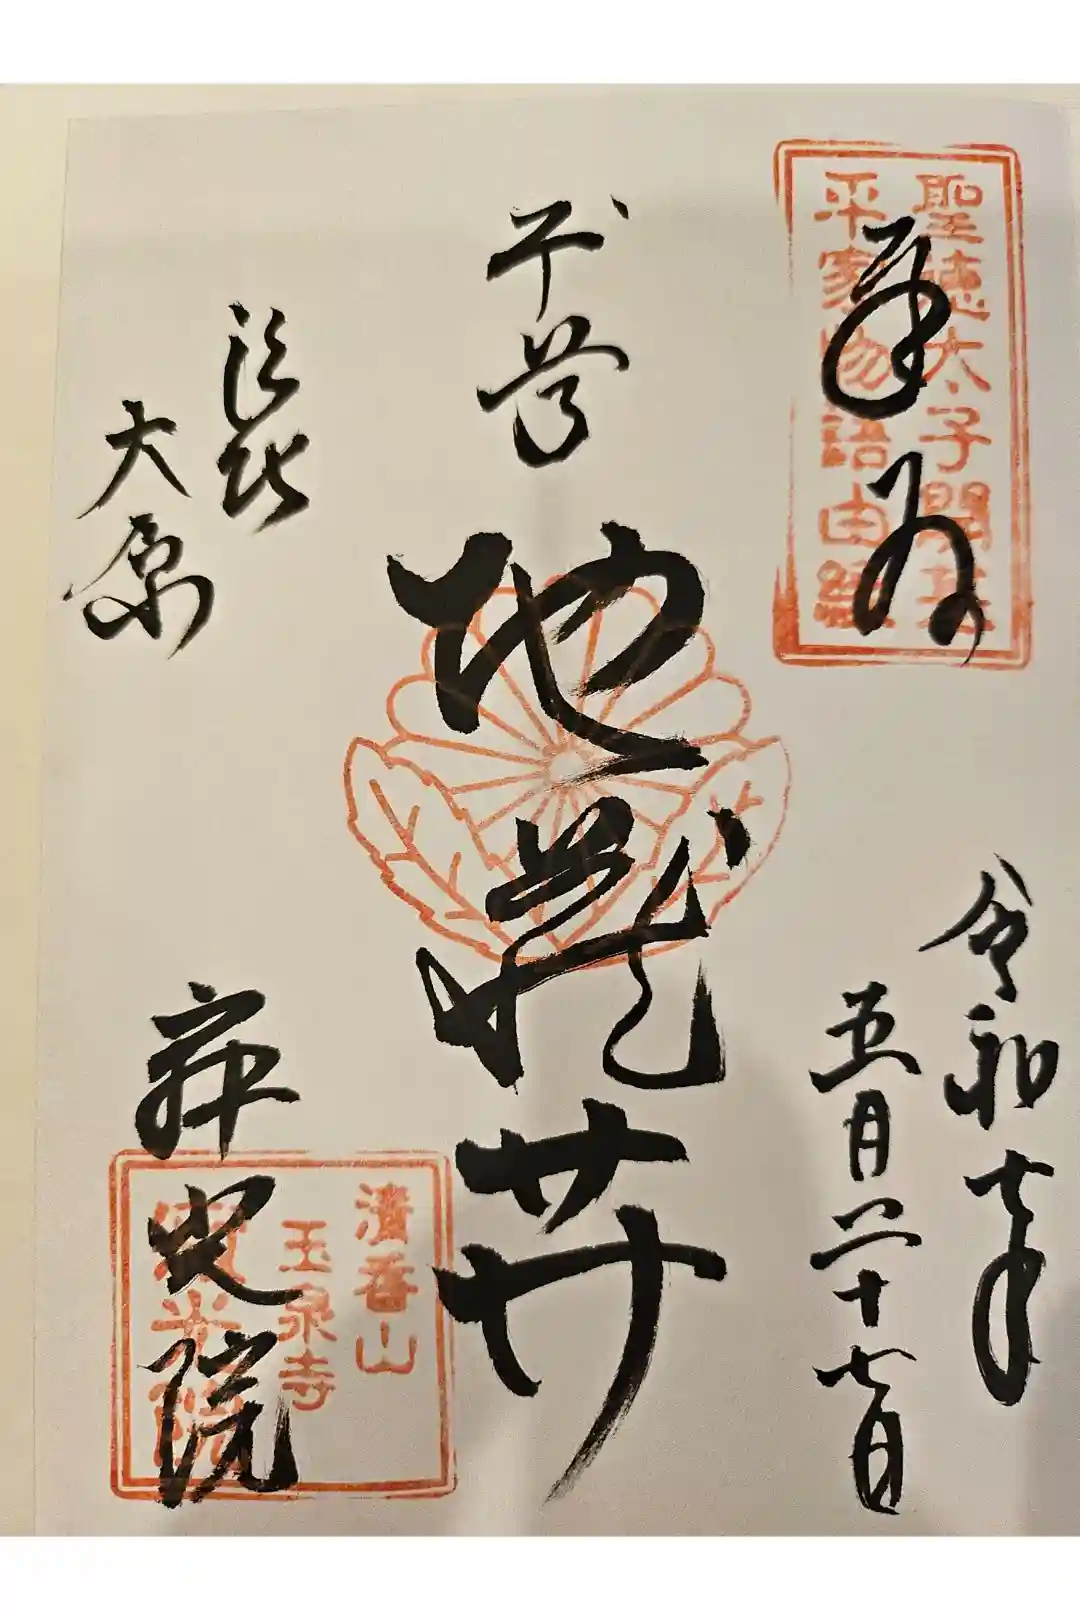 奉拝
聖徳太子開基
平家物語由緒
令和七年
五月二十七日
本尊
地蔵井
洛北
大原
寂光院
清香山
玉泉寺
寂光院